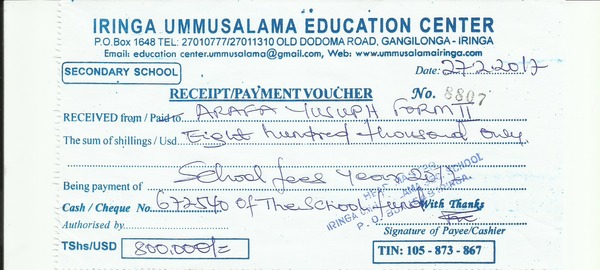 IRINGA UMMUSALAMA EDUCATION CENTER
P.O.Box 1648 TEL: 27010777/27011310 OLD DODOMA ROAD, GANGILONGA - IRINGA
Email: education center.ummusalama@gmail.com, Web: www.ummusalamairinga.com
SECONDARY SCHOOL Date: 27.2.2012
RECEIPT/PAYMENT VOUCHER No. 8807
RECEIVED from / Paid to ARAFA YUSUPH FORM II
The sum of shillings / Usd Eight hundred thousand only
School fees year 2012
Being payment of
Cash / Cheque No. 672540 Of The School fund With Thanks
HEAD MASTER
IRINGA UMMUSALAMA SCHOOL
P. O. BOX IRINGA.
Authorised by
Signature of Payee/Cashier
TShs/USD 800.000/= TIN: 105 - 873 - 867